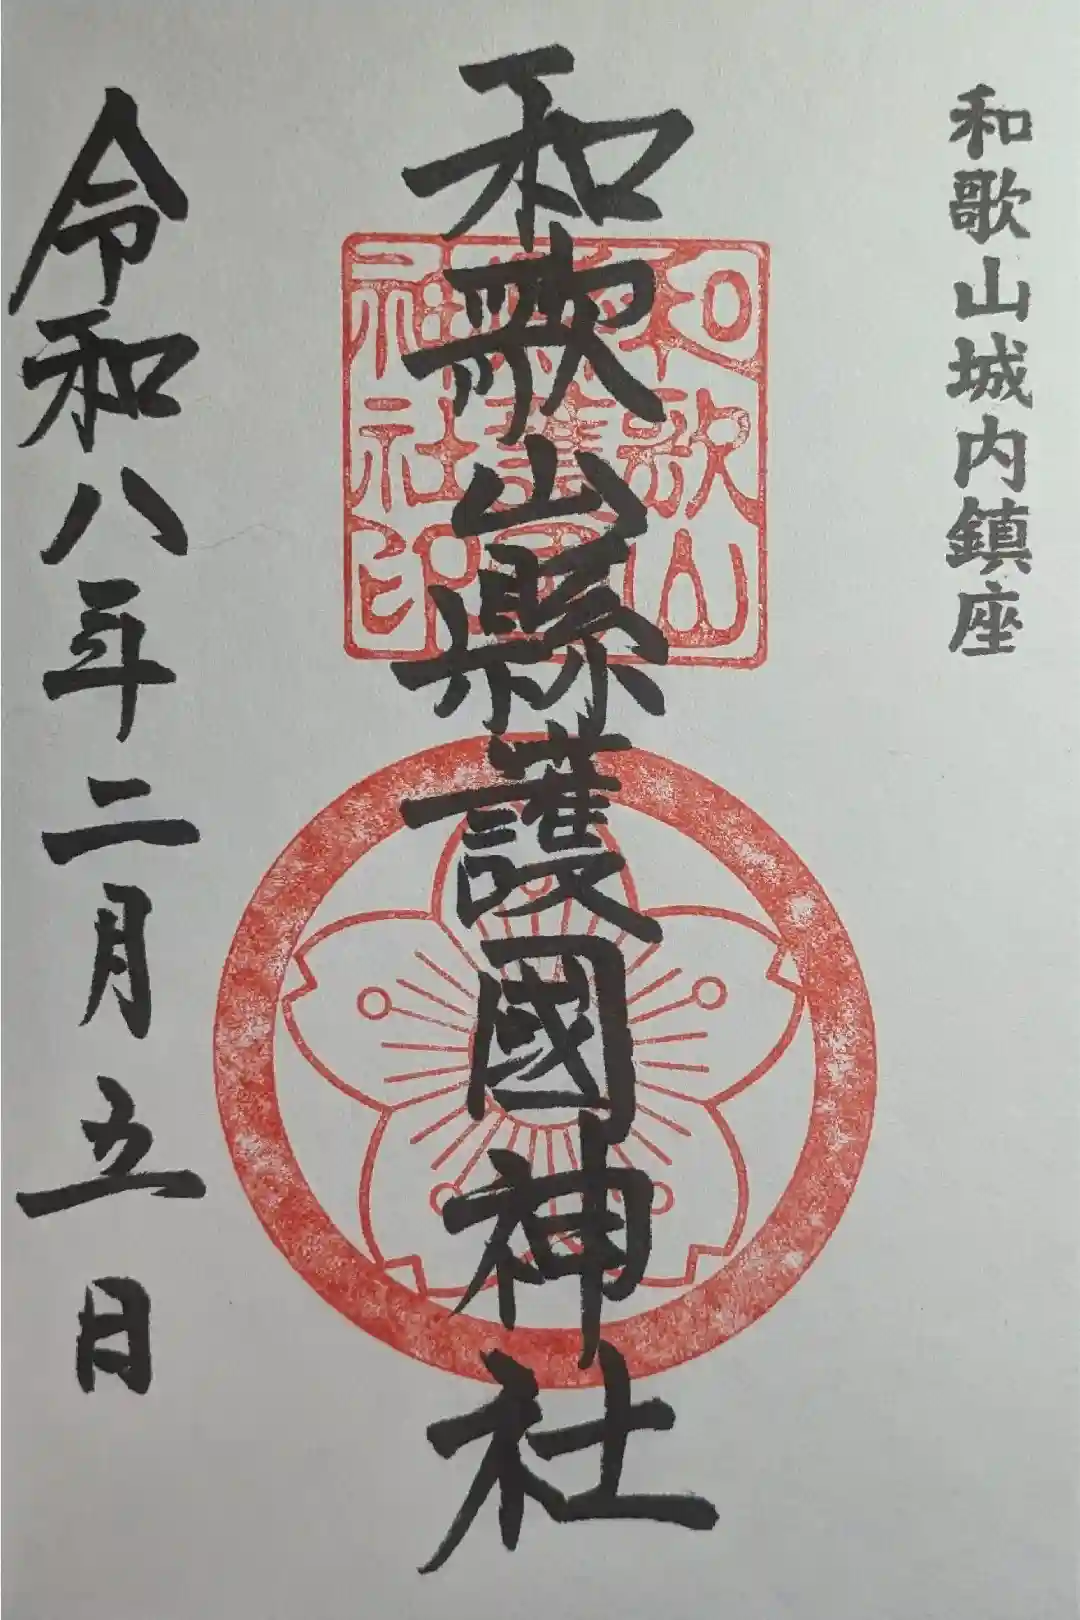 和歌山城内鎮座
和歌山縣護國神社
和歌山
護國
神社印
令和八年二月五日